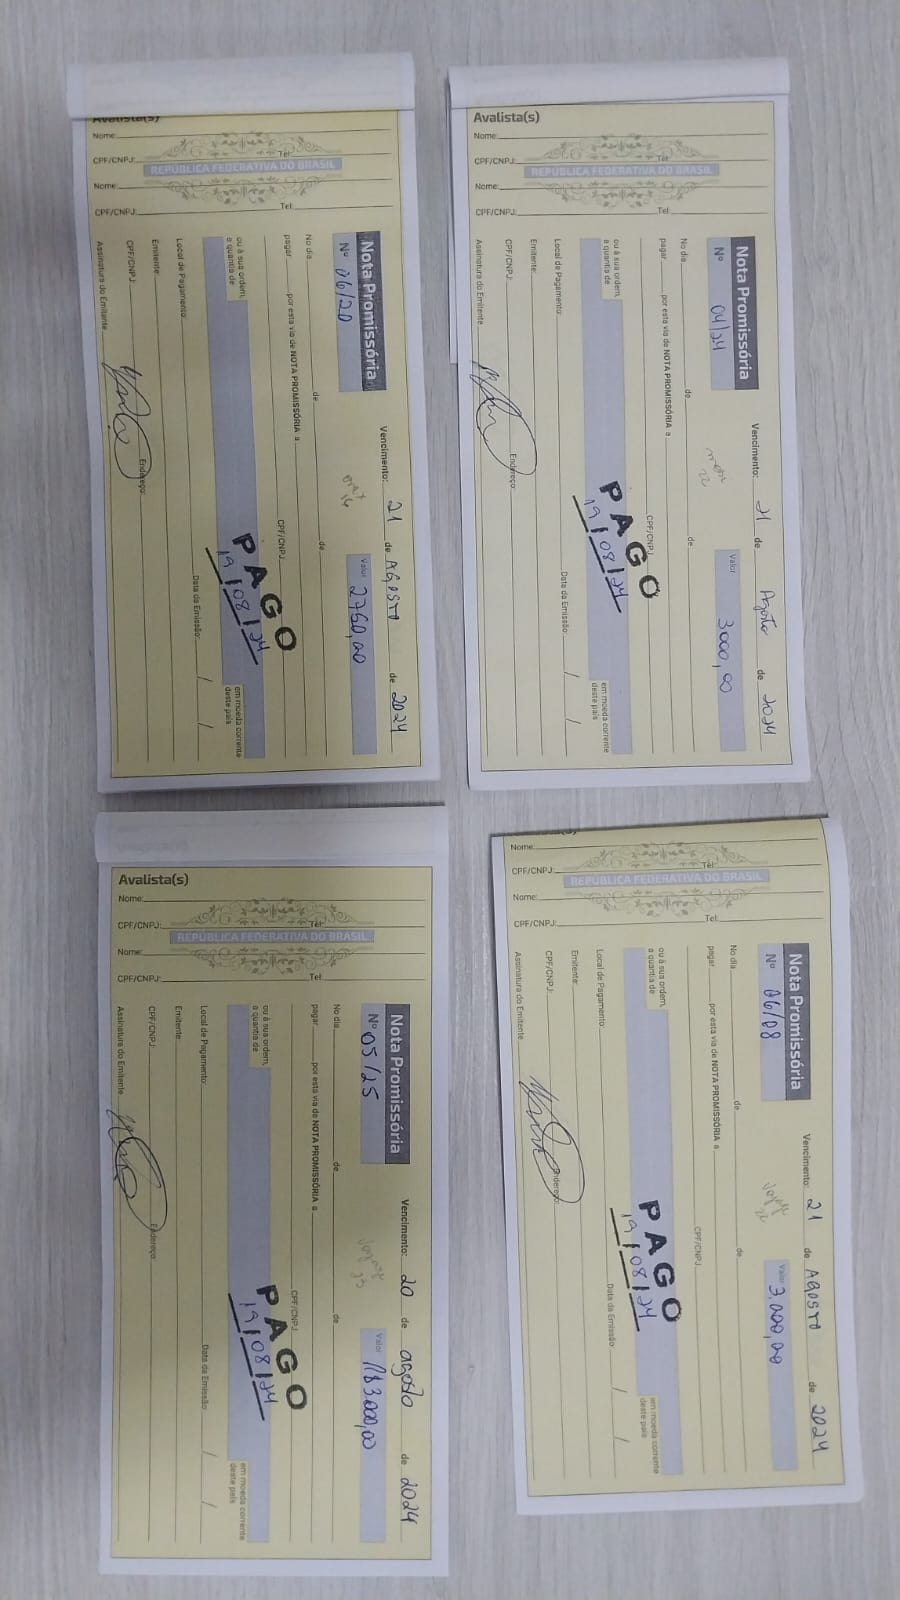 Avalista(s)
Nome:
CPF/CNPJ: Tel:
REPÚBLICA FEDERATIVA DO BRASIL
Nome:
CPF/CNPJ: Tel:
Nota Promissória
Vencimento: 21 de AGOSTO de 2024
Nº 06/20
Valor 2750,00
No dia de de
pagar por esta via de NOTA PROMISSÓRIA a
CPF/CNPJ
ou à sua ordem,
a quantia de
em moeda corrente
deste país
PAGO
19/08/24
Local de Pagamento:
Data da Emissão: / /
Emitente:
CPF/CNPJ: Endereço:
Assinatura do Emitente
Avalista(s)
Nome:
CPF/CNPJ: Tel:
REPÚBLICA FEDERATIVA DO BRASIL
Nome:
CPF/CNPJ: Tel:
Nota Promissória
Vencimento: 21 de Agosto de 2024
Nº 04/24
Valor 3000,00
No dia de de
pagar por esta via de NOTA PROMISSÓRIA a
CPF/CNPJ
ou à sua ordem,
a quantia de
em moeda corrente
deste país
PAGO
19/08/24
Local de Pagamento:
Data da Emissão: / /
Emitente:
CPF/CNPJ: Endereço:
Assinatura do Emitente
Avalista(s)
Nome:
CPF/CNPJ: Tel:
REPÚBLICA FEDERATIVA DO BRASIL
Nome:
CPF/CNPJ: Tel:
Nota Promissória
Vencimento: 20 de agosto de 2024
Nº 05/25
Valor R$3000,00
No dia de de
pagar por esta via de NOTA PROMISSÓRIA a
CPF/CNPJ
ou à sua ordem,
a quantia de
em moeda corrente
deste país
PAGO
19/08/24
Local de Pagamento:
Data da Emissão: / /
Emitente:
CPF/CNPJ: Endereço:
Assinatura do Emitente
Nome:
CPF/CNPJ: Tel:
REPÚBLICA FEDERATIVA DO BRASIL
Nome:
CPF/CNPJ: Tel:
Nota Promissória
Vencimento: 21 de AGOSTO de 2024
Nº 06/08
Valor 3.000,00
No dia de de
pagar por esta via de NOTA PROMISSÓRIA a
CPF/CNPJ
ou à sua ordem,
a quantia de
em moeda corrente
deste país
PAGO
19/08/24
Local de Pagamento:
Data da Emissão: / /
Emitente:
CPF/CNPJ: Endereço:
Assinatura do Emitente